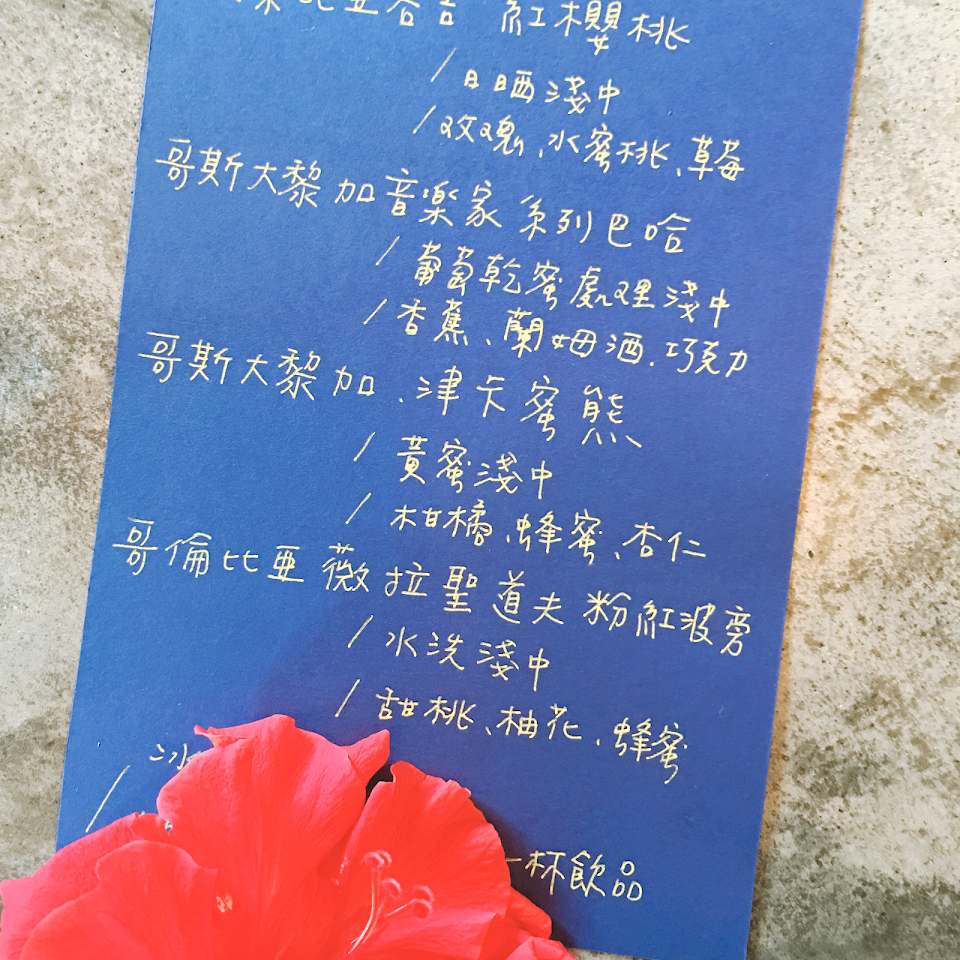 比亞谷吉 紅櫻桃
/日晒淺中
/玫瑰、水蜜桃、草莓
哥斯大黎加音楽家系列巴哈
/葡萄乾蜜處理淺中
/香蕉、蘭姆酒、巧克力
哥斯大黎加、津卡蜜熊
/黃蜜淺中
/柑橘、蜂蜜、杏仁
哥倫比亞薇拉聖道夫 粉紅波旁
/水洗淺中
/甜桃、柚花、蜂蜜
冰
/
一杯飲品